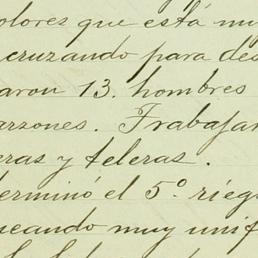 olores que está muy
cruzando para des
aron 13. hombres
arzones. Trabajar
eras y teleras.
erminó el 5º. riego
neando muy unif